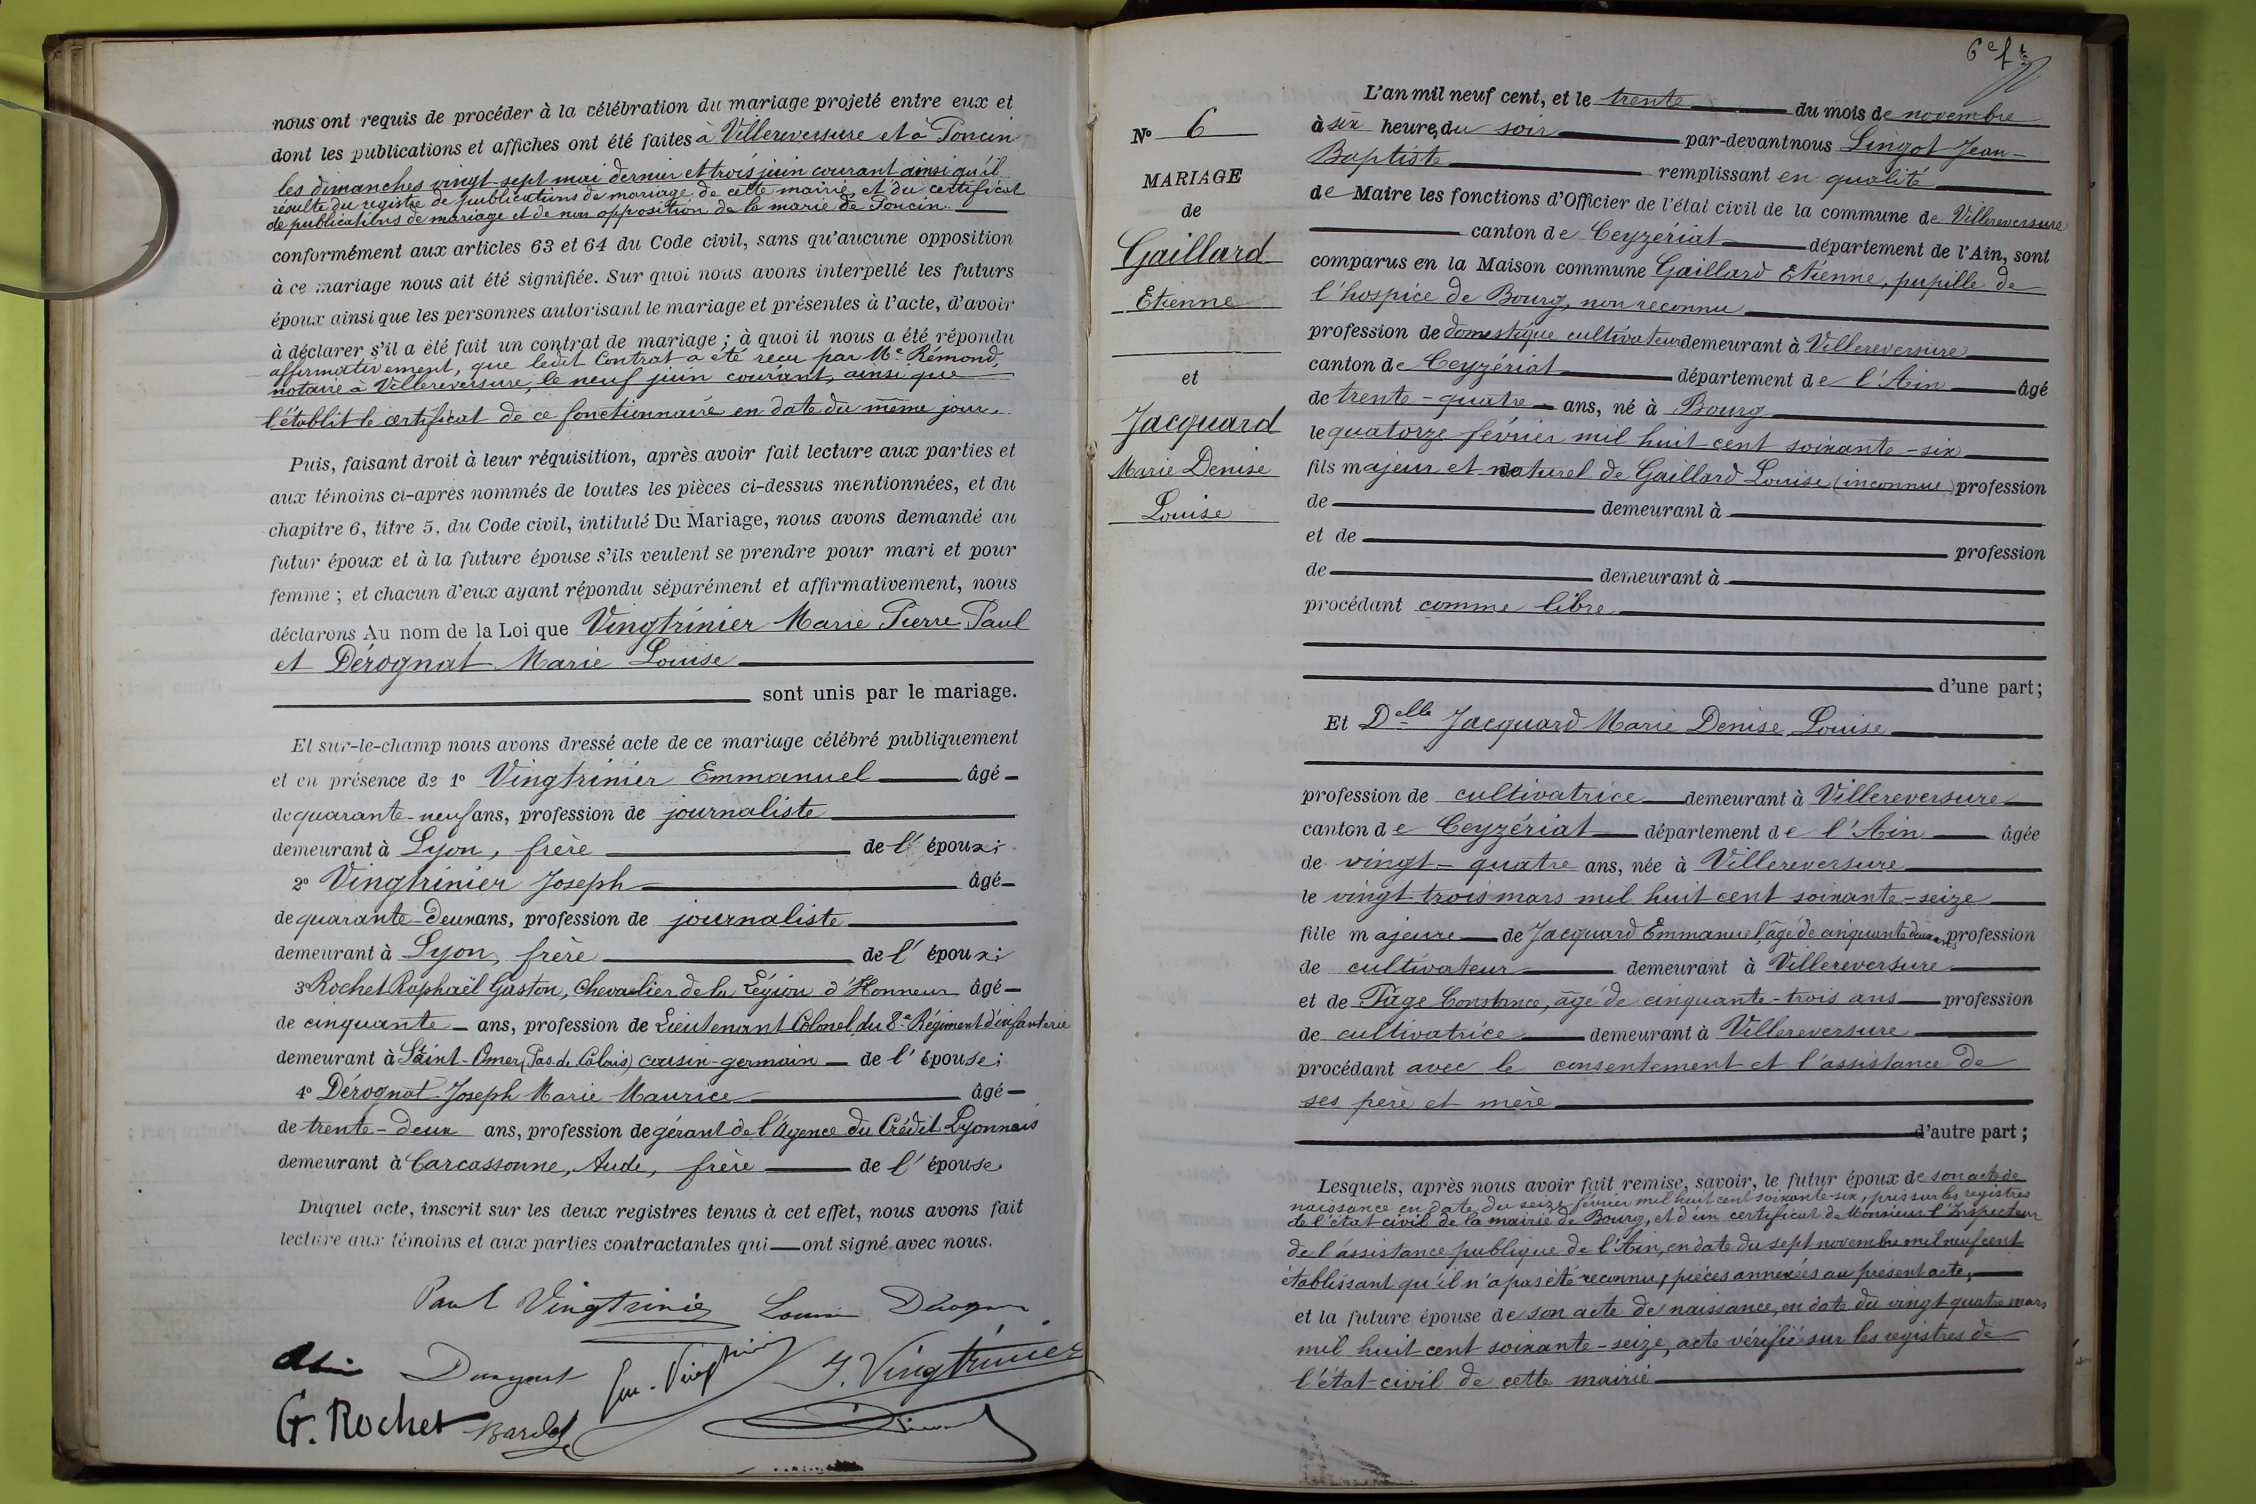 nous ont requis de procéder à la célébration du mariage projeté entre eux et
dont les publications et affiches ont été faites à Villereversure et à Poncin
les dimanches vingt-sept mai dernier et trois juin courant ainsi qu'il
résulte du registre de publications de mariage de cette mairie et du certificat
de publications de mariage et de non opposition de la marie de Poncin.
conformément aux articles 63 et 64 du Code civil, sans qu'aucune opposition
à ce mariage nous ait été signifiée. Sur quoi nous avons interpellé les futurs
époux ainsi que les personnes autorisant le mariage et présentes à l'acte, d'avoir
à déclarer s'il a été fait un contrat de mariage ; à quoi il nous a été répondu
affirmativement, que ledit Contrat a été reçu par Me Rémond,
notaire à Villereversure, le neuf juin courant, ainsi que
l'établit le certificat de ce fonctionnaire en date du même jour.
Puis, faisant droit à leur réquisition, après avoir fait lecture aux parties et
aux témoins ci-après nommés de toutes les pièces ci-dessus mentionnées, et du
chapitre 6, titre 5, du Code civil, intitulé Du Mariage, nous avons demandé au
futur époux et à la future épouse s'ils veulent se prendre pour mari et pour
femme ; et chacun d'eux ayant répondu séparément et affirmativement, nous
déclarons Au nom de la Loi que Vingtrinier Marie Pierre Paul
et Dérognat Marie Louise
sont unis par le mariage.
Et sur-le-champ nous avons dressé acte de ce mariage célébré publiquement
et en présence de 1º Vingtrinier Emmanuel âgé
de quarante-neuf ans, profession de journaliste
demeurant à Lyon, frère de l'époux;
2º Vingtrinier Joseph âgé
de quarante-deux ans, profession de journaliste
demeurant à Lyon, frère de l'époux;
3º Rochet Raphaël Gaston, Chevalier de la Légion d'Honneur âgé
de cinquante ans, profession de Lieutenant Colonel du 8e Régiment d'infanterie
demeurant à Saint-Omer (Pas de Calais) cousin-germain de l'épouse;
4º Dérognat Joseph Marie Maurice âgé
de trente-deux ans, profession de gérant de l'Agence du Crédit Lyonnais
demeurant à Carcassonne, Aude, frère de l'épouse
Duquel acte, inscrit sur les deux registres tenus à cet effet, nous avons fait
lecture aux témoins et aux parties contractantes qui ont signé avec nous.
Paul Vingtrinier Louise
J. Vingtrinier
G. Rochet
6e ft
Nº 6
MARIAGE
de
Gaillard
Etienne
et
Jacquard
Marie Denise
Louise
L'an mil neuf cent, et le trente du mois de novembre
à six heures du soir par-devant nous Lingot Jean-
Baptiste remplissant en qualité
de Maire les fonctions d'Officier de l'état civil de la commune de Villereversure
canton de Ceyzériat département de l'Ain, sont
comparus en la Maison commune Gaillard Etienne, pupille de
l'hospice de Bourg, non reconnu
profession de domestique cultivateur demeurant à Villereversure
canton de Ceyzériat département de l'Ain âgé
de trente-quatre ans, né à Bourg
le quatorze février mil huit cent soixante-six
fils majeur et naturel de Gaillard Louise (inconnue) profession
de demeurant à
et de profession
de demeurant à
procédant comme libre
d'une part;
Et Delle Jacquard Marie Denise Louise
profession de cultivatrice demeurant à Villereversure
canton de Ceyzériat département de l'Ain âgée
de vingt-quatre ans, née à Villereversure
le vingt trois mars mil huit cent soixante-seize
fille majeure de Jacquard Emmanuel âgé de cinquante deux ans profession
de cultivateur demeurant à Villereversure
et de Page Constance, âgé de cinquante-trois ans profession
de cultivatrice demeurant à Villereversure
procédant avec le consentement et l'assistance de
ses père et mère
d'autre part;
Lesquels, après nous avoir fait remise, savoir, le futur époux de son acte de
naissance en date du seize février mil huit cent soixante-six, pris sur les registres
de l'état civil de la mairie de Bourg, et d'un certificat de Monsieur l'Inspecteur
de l'assistance publique de l'Ain, en date du sept novembre mil neuf cent
établissant qu'il n'a pas été reconnu, pièces annexées au présent acte,
et la future épouse de son acte de naissance, en date du vingt quatre mars
mil huit cent soixante-seize, acte vérifié sur les registres de
l'état civil de cette mairie